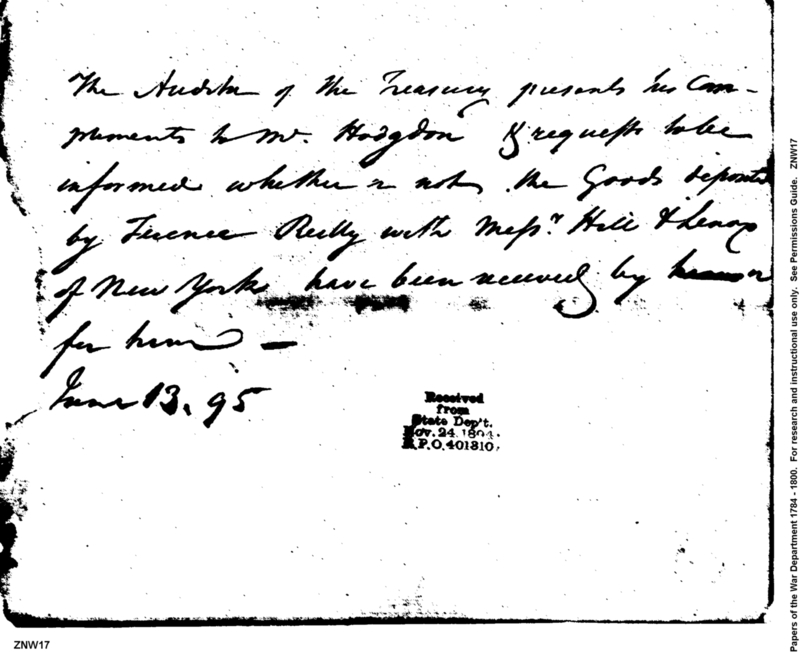 The Auditor of the Treasury presents his Com-
pliments to Mr. Hodgdon & requests to be
informed whether or not the Goods deposited
by Terence Reilly with Messrs. Hill & Lenox
of New York have been received by him or
for him —
June 13. 95
Received
from
State Dep't.
Nov. 24, 1894.
R.P.O. 401310.
ZNW17
Papers of the War Department 1784 - 1800. For research and instructional use only. See Permissions Guide. ZNW17